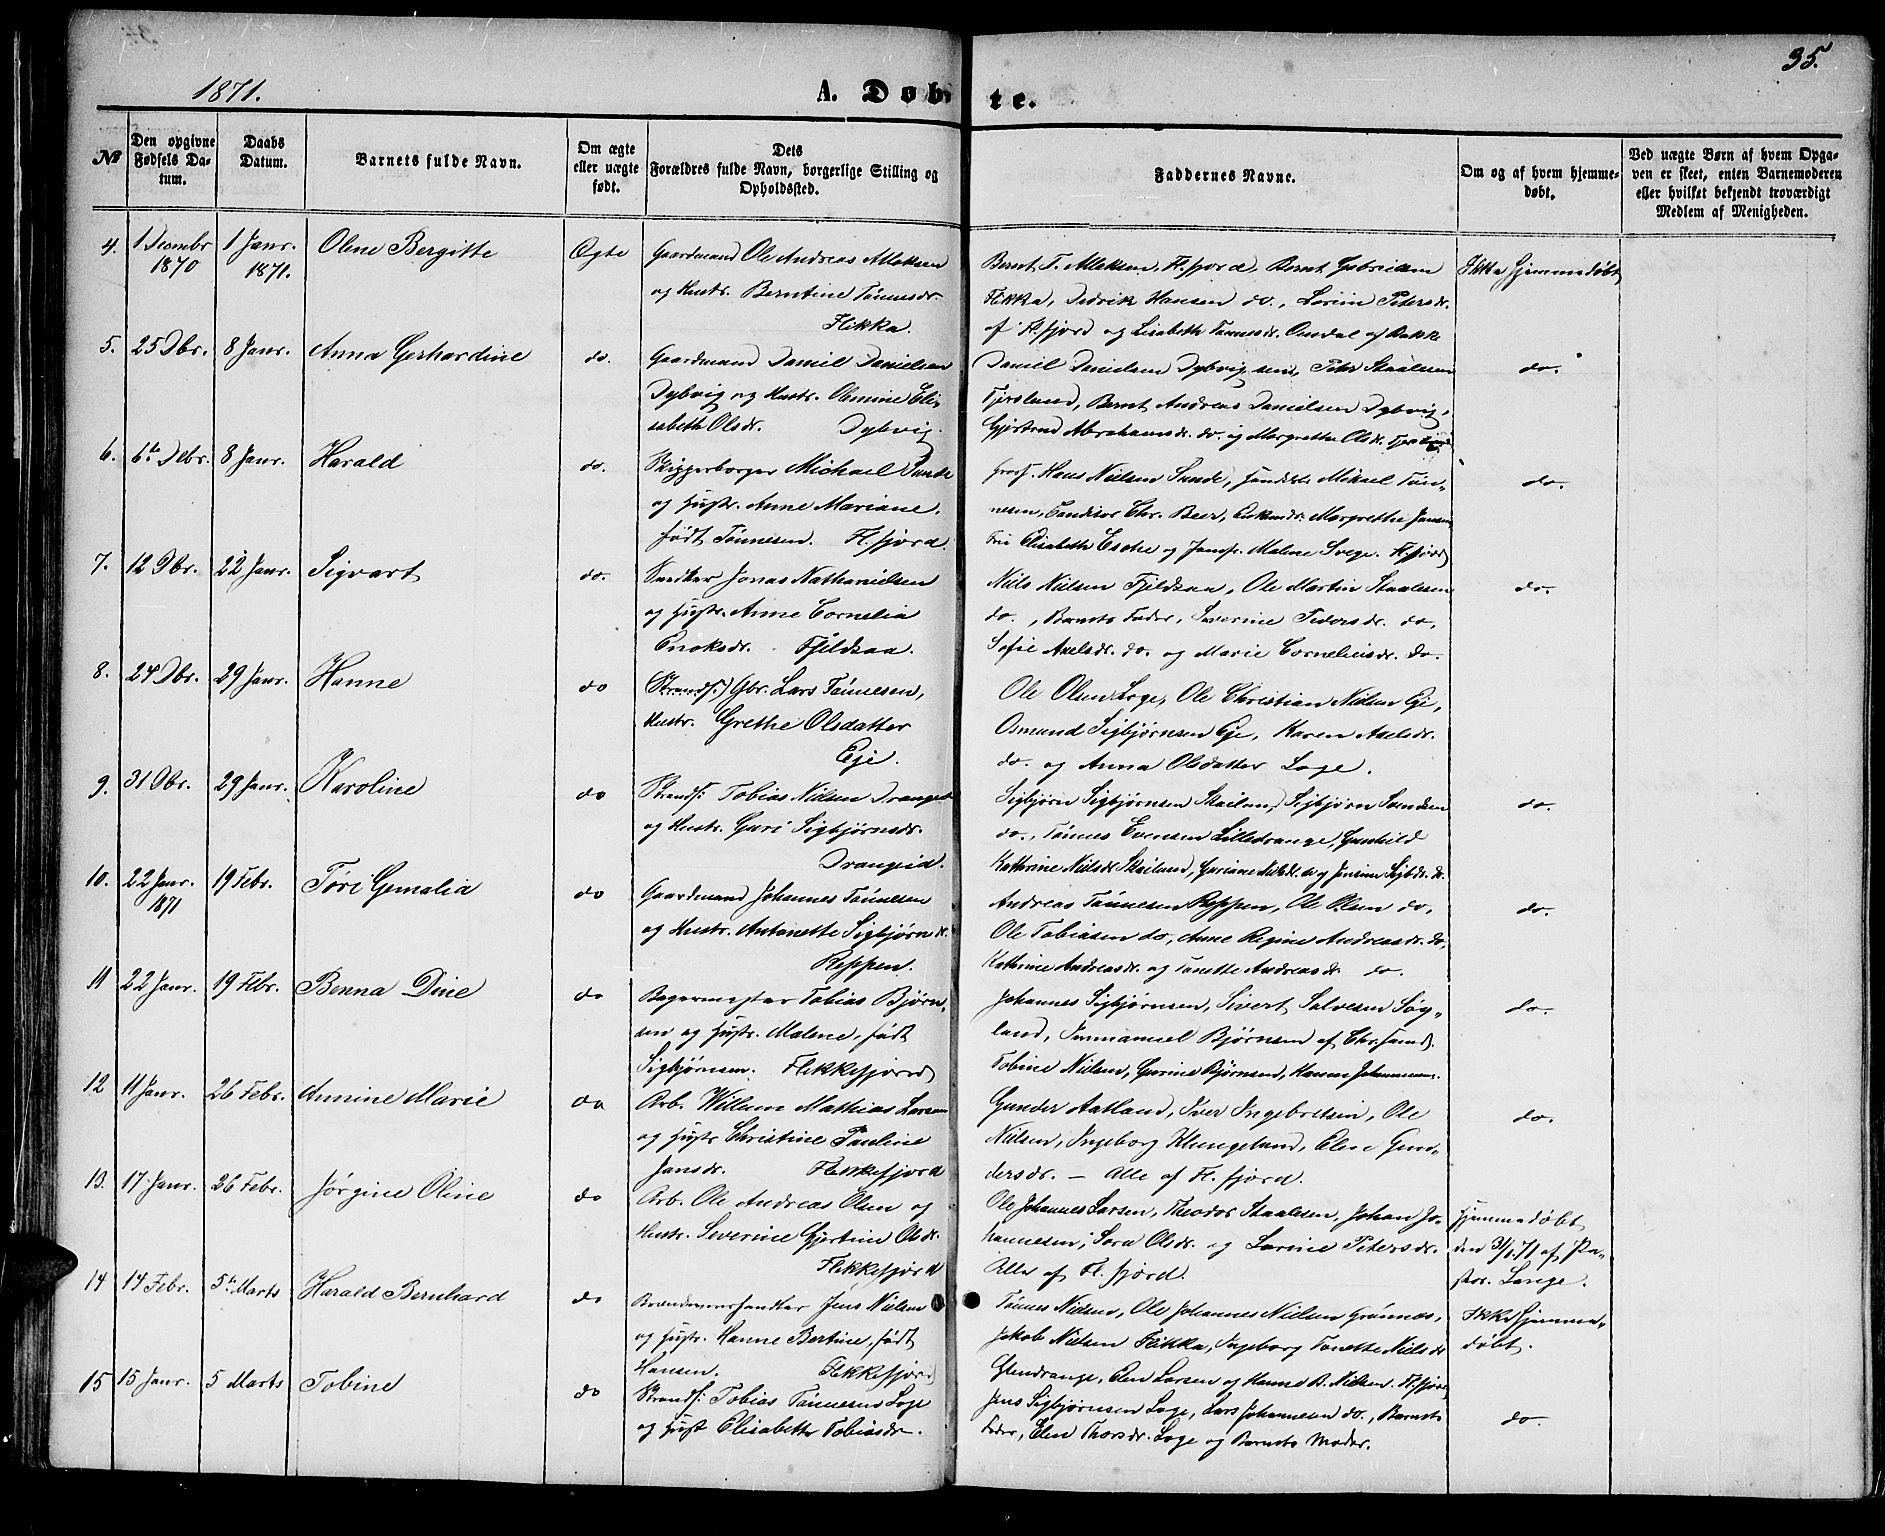 35.
1871.
A. Døbte.
No
Den opgivne Fødsels Datum.
Daabs Datum.
Barnets fulde Navn.
Om ægte eller uægte født.
Dets Forældres fulde Navn, borgerlige Stilling og Opholdssted.
Faddernes Navne.
Om og af hvem hjemmedøbt.
Ved uægte Børn af hvem Opgaven er skeet, enten Barnemoderen eller hvilket bekjendt troværdigt Medlem af Menigheden.
4. 1 Decembr 1870
1 Janr. 1871.
Oline Bergitte
Ægte
Gaardmand Ole Andreas Atleksen
og Hustr. Berntine Tønnesdr.
Flikka.
Bernt T. Atleksen, Fl.fjord, Bernt Gabrielsen
Flikka, Didrik Hansen do., Lorine Petersdr.
af Fl.fjord og Lisabeth Tønnesdr. Omdal af Bakke
Ikke Hjemmedøbt
5. 25 Dbr.
8 Janr.
Anna Gerhardine
do.
Gaardmand Daniel Danielsen
Dybvig og Hustr. Olemine Eli-
sabeth Olsdr. Dybvig.
Daniel Danielsen Dybvig sen., Peter Staalesen
Fjersland, Bernt Andreas Danielsen Dybvig,
Gjertrud Abrahamsdr. do. og Margrethe Olsdr.
do.
6. 6te Dbr.
8 Janr.
Harald
do.
Skipperborger Michael Sunde
og Hustr. Anne Mariane,
født Tønnesen. Fl.fjord.
Hans Nielsen Sunde, Handelsb. Mikael Tøn-
nesen, Konditor Chr. Beer, Margrethe Jansen
Elisabeth Esche og Jomfr. Malene Svege. Fl.fjord
do.
7. 12 Dbr.
22 Janr.
Sigvart
do.
Snedker Jonas Nathanielsen
og Hustr. Anne Cornelia
Enoksdr. Fjeldsaa.
Niels Nielsen Fjeldsaa, Ole Martin Staalesen
do., Barnets Fader, Severine Pedersdr. do,
Sofie Axelsdr. do. og Marie Corneliusdr. do.
do.
8. 24 Dbr.
29 Janr.
Hanne
do
(Strands.) Gbr. Lars Tønnesen,
Hustr. Grethe Olsdatter
Eje.
Ole Olsen Loge, Ole Christian Nielsen Eje,
Osmund Sigbjørnsen Eje, Karen Axelsdr.
do. og Anna Olsdatter Loge.
9. 31 Dbr.
29 Janr.
Karoline
do
Strands. Tobias Nielsen Drangeid
og Hustr. Guri Sigbjørnsdr.
Drangeid.
Sigbjørn Sigbjørnsen Skailand, Sigbjørn Svendsen
do., Tønnes Evensen Lilledrange, Gunhild
Kathrine Nielsdr. Skailand, Guriane Nielsdr. do og Jensine Sigbdr. do.
do.
10. 22 Janr. 1871
19 Febr.
Tøri Gemalia
do
Gaardmand Johannes Tønnesen
og Hustr. Antonette Sigbjørnsdr.
Reppen.
Andreas Tønnesen Reppen, Ole Olsen do,
Ole Tobiasen do, Anne Regine Andreasdr. do,
Kathrine Andreasdr. og Tonette Andreasdr. do.
do.
11 22 Janr.
19 Febr.
Benna Dine
do
Bagermester Tobias Bjørn-
sen og Hustr. Malene, født
Sigbjørnsen. Flekkefjord
Johannes Sigbjørnsen, Sivert Salvesen Søy-
land, Immanuel Bjørnsen af Chr.sand,
Tobine Nielsen, Gurine Bjørnsen, Hanne Johannesen.
do.
12 11 Janr.
26 Febr.
Annine Marie
do
Arb. Willum Mathias Larsen
og Hustr Christine Pauline
Jansdr. Flekkefjord
Gunder Aatland, Iver Ingebretsen, Ole
Nielsen, Ingeborg Klungeland, Elen Gun-
dersdr. – Alle af Fl.fjord.
do.
13. 17 Janr.
26 Febr.
Jørgine Oline
do
Arb. Ole Andreas Olsen og
Hustr. Severine Gjertine Olsdr.
Flekkefjord
Ole Johannes Larsen, Theodor Staalesen, Johan Jo-
hannesen, Sara Olsdr. og Lorine Petersdr.
Alle af Fl.fjord.
Hjemmedøbt
den 31/1 71 af Pa-
stor. Lange.
14 14 Febr.
5te Marts
Harald Bernhard
do
Brændevinshandler Jens Nielsen
og Hustr. Hanne Bertine, født
Hansen. Flekkefjord
Tønnes Nielsen, Ole Johannes Nielsen Grønnes,
Jakob Nielsen Flikka, Ingeborg Tonette Nielsdr
Glendrange, Elen Larsen og Hanne B. Nielsen. Fl.fjord
Ikke Hjemme-
døbt.
15 15 Janr.
5 Marts
Tobine
do
Strands. Tobias Tønnesen Loge
og Hust Elisabeth Tobiasdr.
Jens Sigbjørnsen Loge, Lars Johannesen do., Barnets
Fader, Elen Thorsdr. Loge og Barnets Moder.
do.